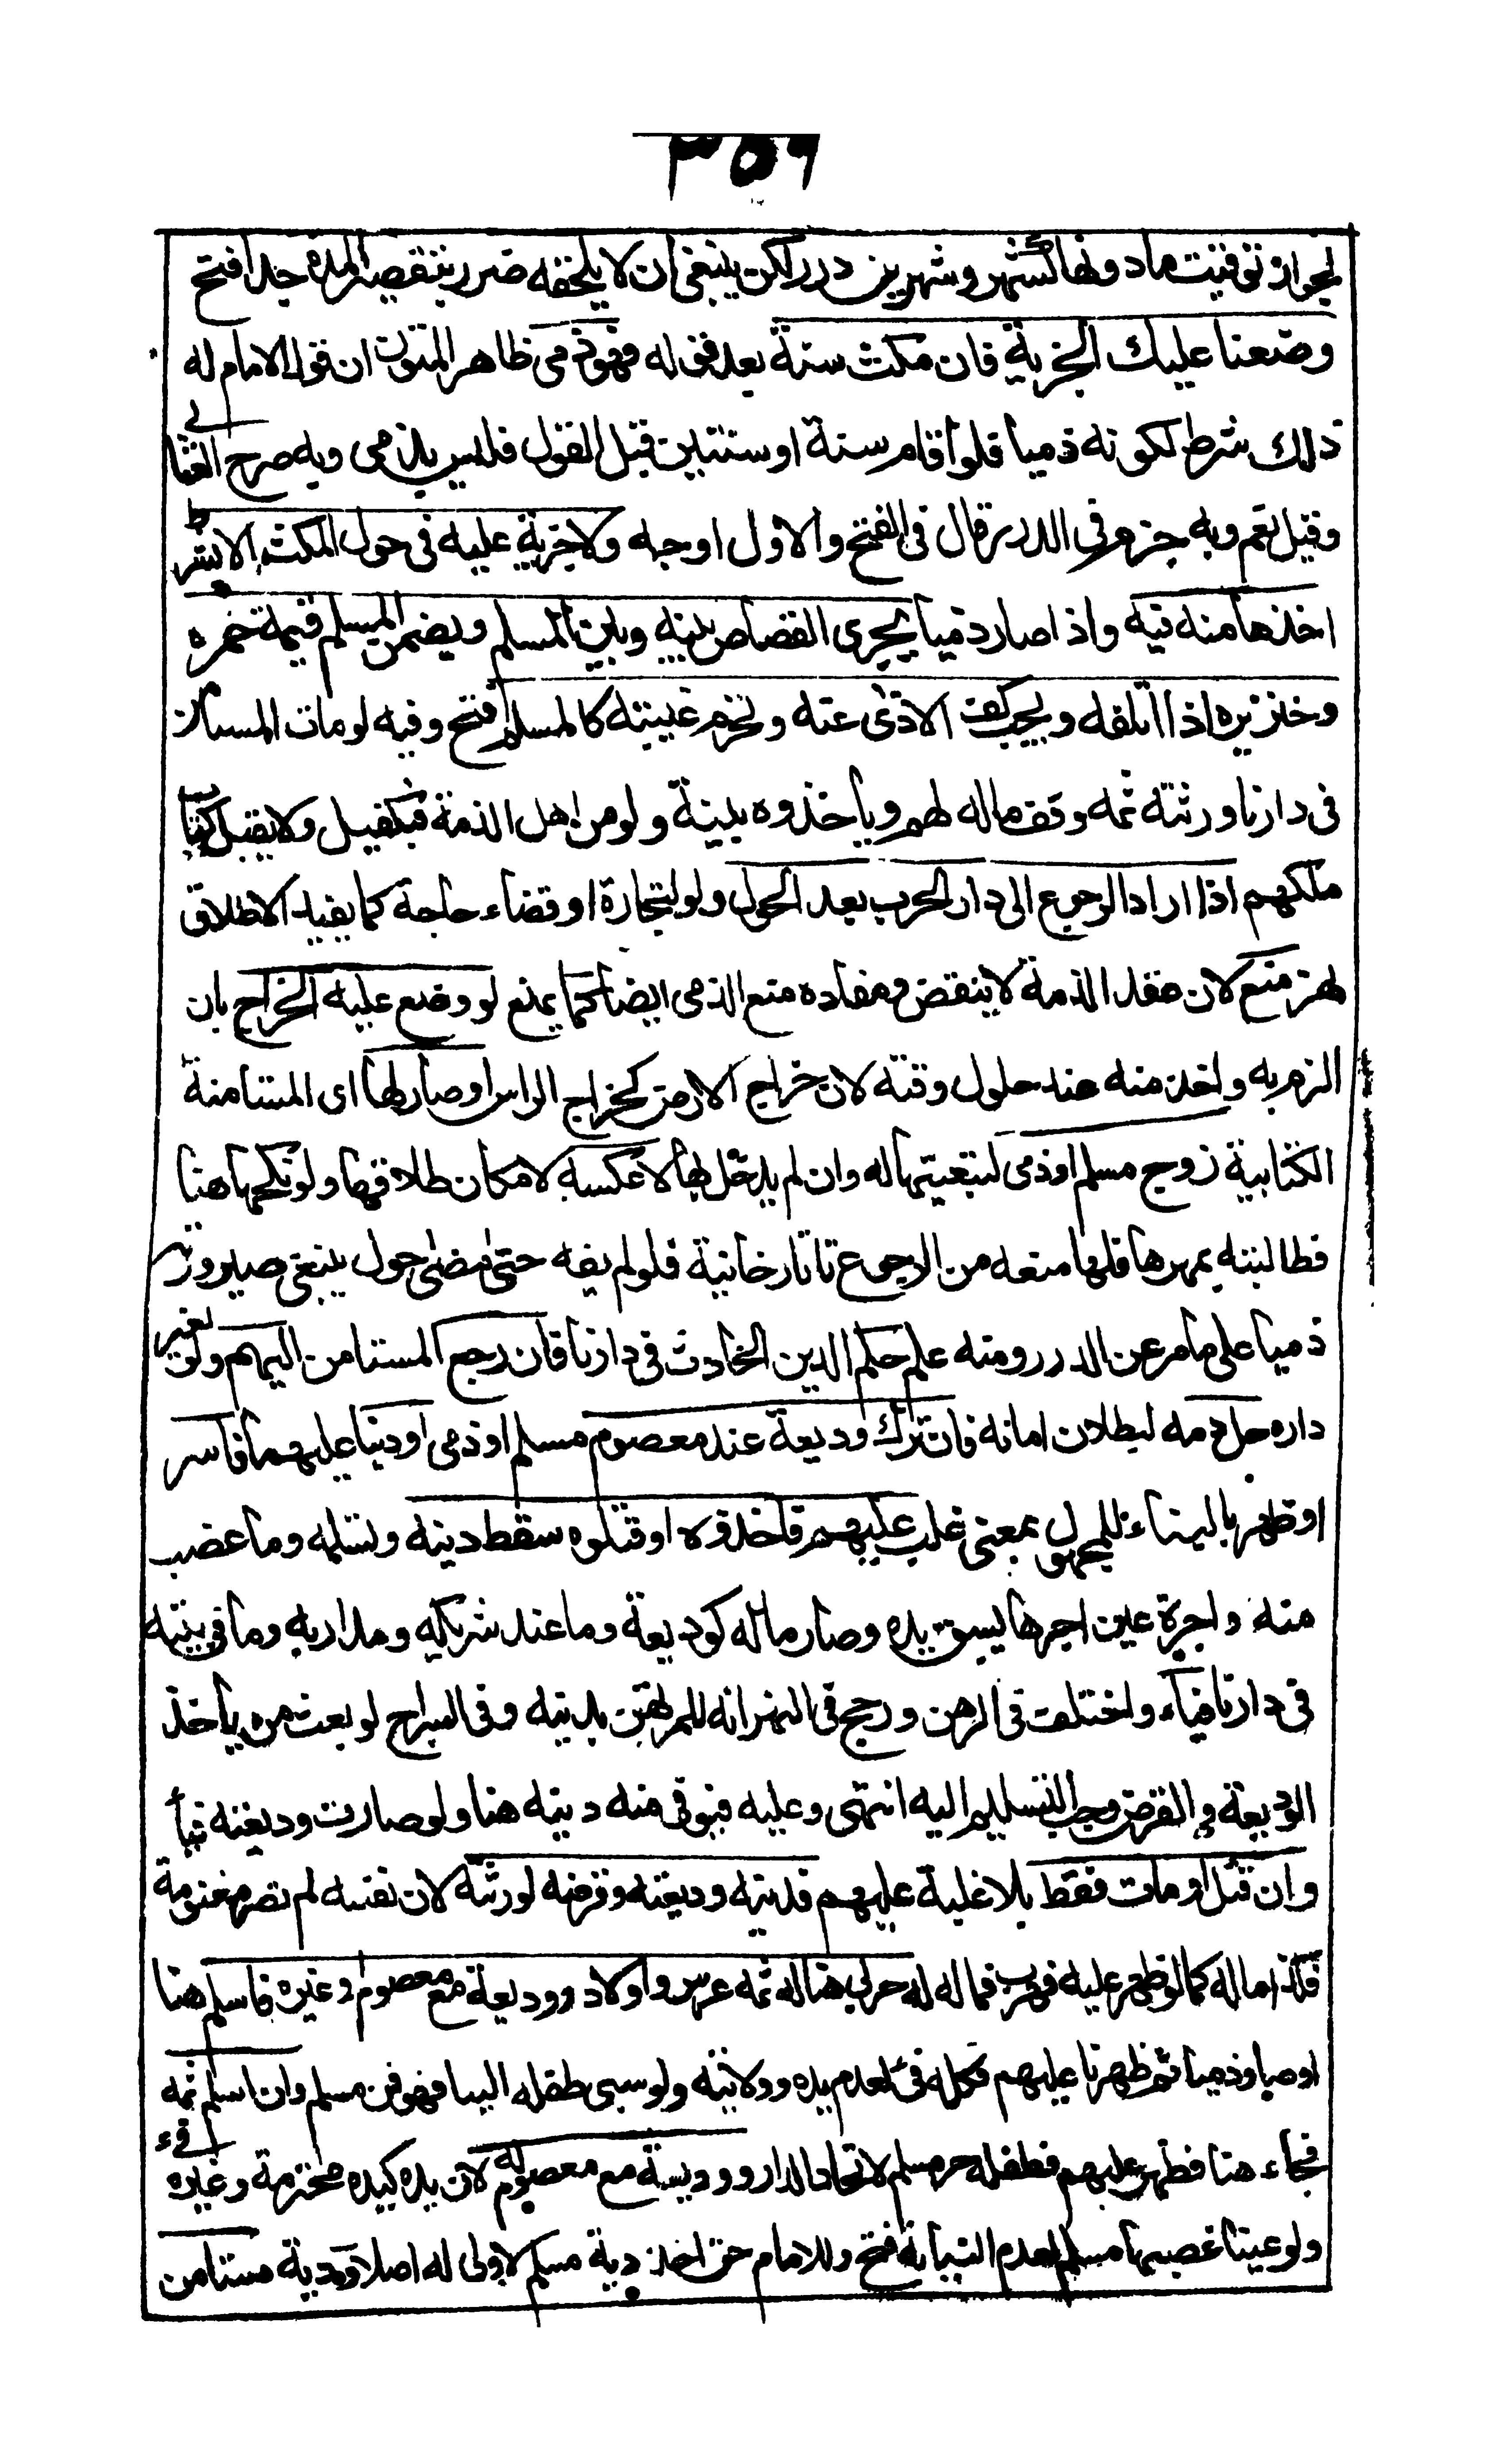 ٣٥٩
لجواز توقيت ما دونها كشهر وشهرين درر لكن ينبغى ان لا يلحقه ضرر بتقصير المدة جدا فتح
وضعنا عليك الجزية فان مكث سنة بعد قوله فهو ذمى ظاهر المتون ان قول الامام له
ذلك شرط لكونه ذميا فلو اقام سنة او سنتين قبل القول فليس بذمى وبه صرح العتابى
وقيل نعم وبه جزم فى الدرر قال فى الفتح والاول اوجه ولا جزية عليه فى حول المكث الا بشرط
اخذها منه فيه واذا صار ذميا يجرى القصاص بينه وبين المسلم ويضمن المسلم قيمة خمره
وخنزيره اذا اتلفه ويجب كف الاذى عنه وتحرم غيبته كالمسلم فتح وفيه لو مات المستامن
فى دارنا وورثته ثمه وقف ماله لهم وياخذوه ببينة ولو من اهل الذمة فبكفيل ولا يقبل كتاب
ملكهم اذا اراد الرجوع الى دار الحرب بعد الحول ولو لتجارة او قضاء حاجة كما يفيد الاطلاق
نهر منع لان عقد الذمة لا ينقض ومفاده منع الذمى ايضا كما يمنع لو وضع عليه الخراج بان
الزم به واخذ منه عند حلول وقته لان خراج الارض كخراج الراس او صار لها اى المستامنة
الكتابية زوج مسلم او ذمى لتبعيتها له وان لم يدخل بها لا عكسه لامكان طلاقها ولو نكحها هنا
فطالبته بمهرها فلها منعه من الرجوع تاتارخانية فلو لم يفه حتى مضى حول ينبغى صيرورته
ذميا على ما مر عن الدرر ومنه علم حكم الدين الحادث فى دارنا فان رجع المستامن اليهم ولو لغير
داره حل دمه لبطلان امانه فان ترك وديعة عند معصوم مسلم او ذمى او دينا عليهما فاسر
او ظهر بالبناء للمجهول بمعنى غلب عليهم فاخذوه او قتلوه سقط دينه وسلمه وما غصب
منه واجرة عين اجرها بسبق يده وصار ماله كوديعة وما عند شريكه ومضاربه وما فى بيته
فى دارنا فيأ واختلف فى الرهن ورجح فى النهر انه للمرتهن بدينه وفى السراج لو بعث من ياخذ
الوديعة والقرض وجب التسليم اليه انتهى وعليه فيوفى منه دينه هنا ولو صارت وديعته فيأ
وان قتل او مات فقط بلا غلبة عليهم فدينه ووديعته وقرضه لورثته لان نفسه لم تصر مغنومة
فكذا ماله كما لو ظهر عليه فهرب فماله له حربى هنا له ثمه عرس واولاد ووديعة مع معصوم وغيره فاسلم هنا
او صار ذميا ثم ظهرنا عليهم فكله فئ لعدم يده وولايته ولو سبى طفله الينا فهو قن مسلم وان اسلم ثمه
فجاء هنا فظهر عليهم فطفله حر مسلم لاتحاد الدار ووديعة مع معصوم له لان يده كيده محترمة وغيره فئ
ولو عينا غصبها مسلم لعدم النيابة فتح وللامام حق اخذ دية مسلم لا ولى له اصلا ودية مستامن